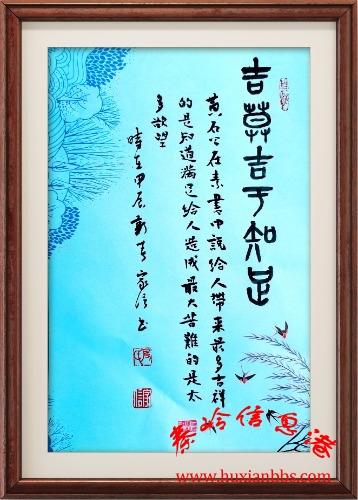 吉莫吉于知足
黄石公在素書中説给人帶来最多吉祥
的是知道滿足给人造成最大苦難的是太
多欲望
時在甲辰新春家信书
www.huxianbbs.com